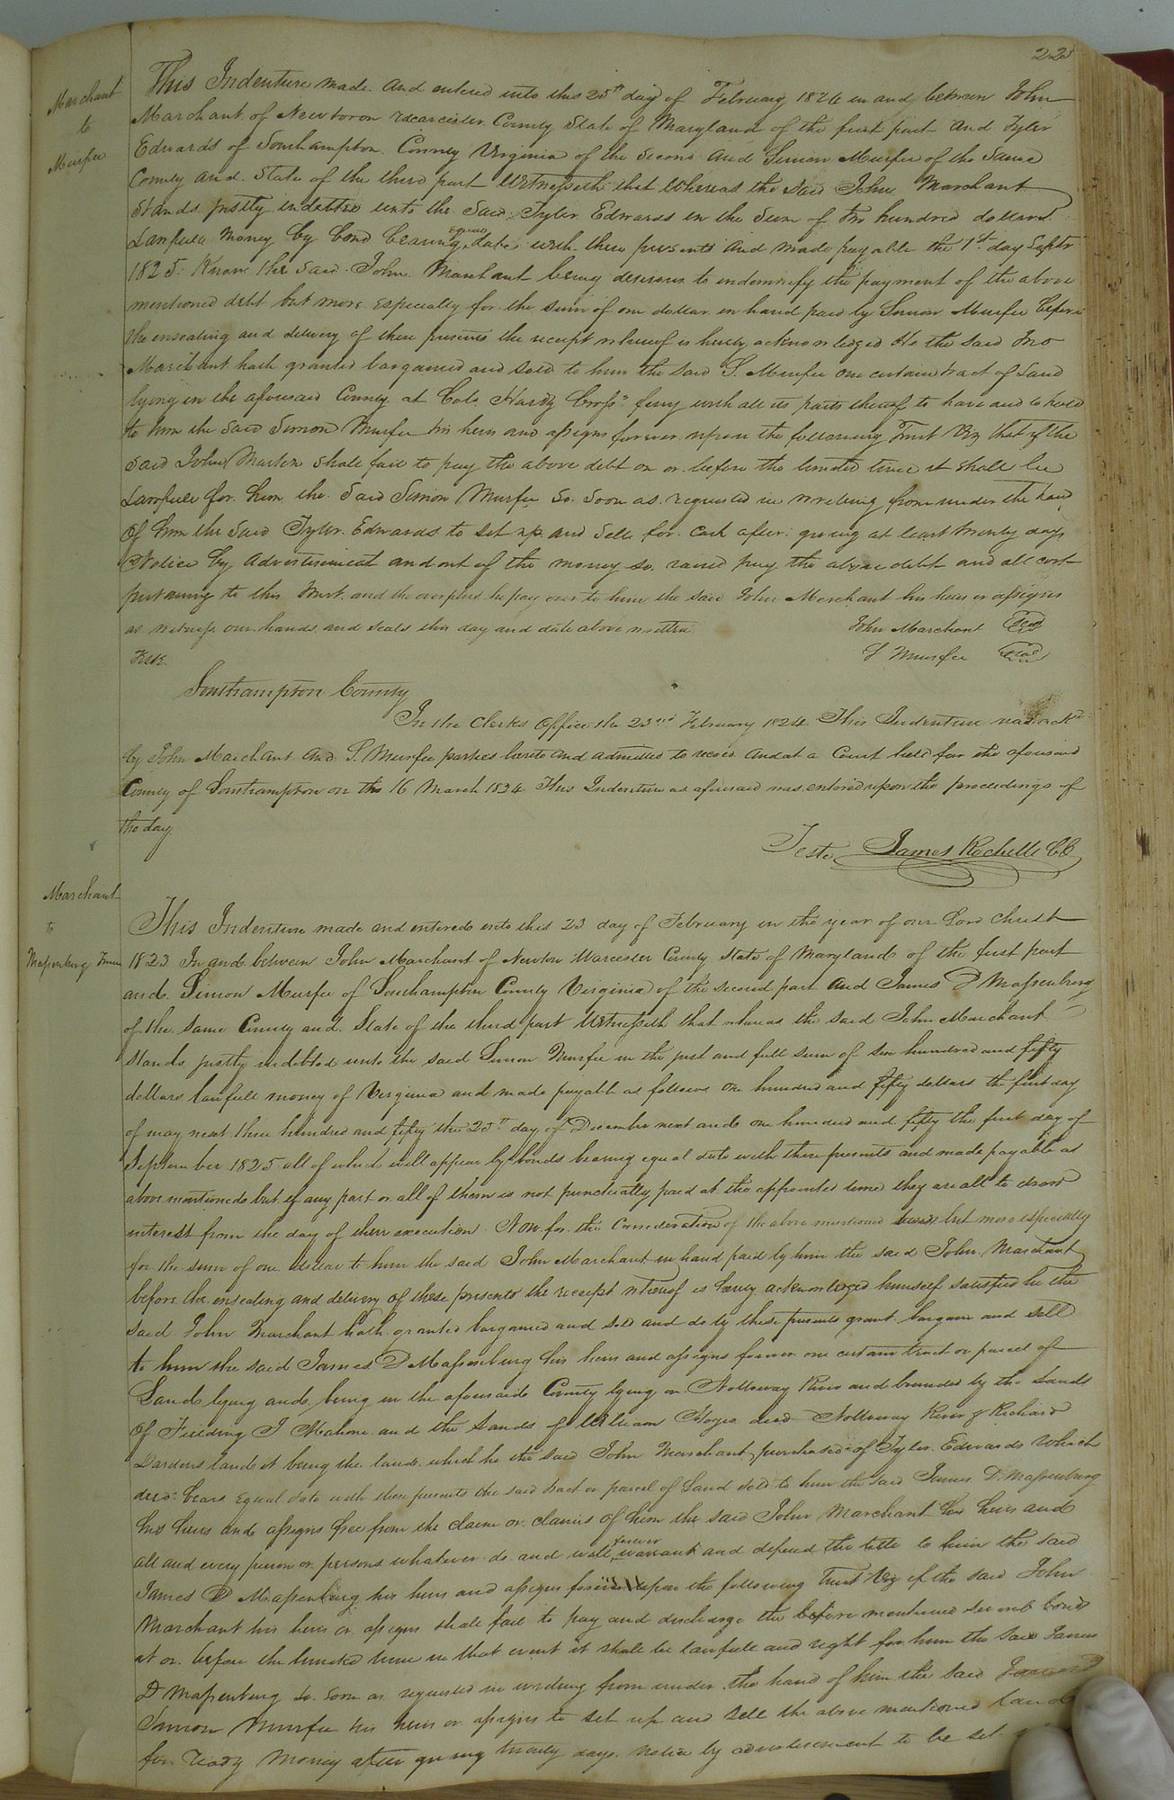 225
Marchant
to
Murfee
This Indenture made and entered into this 23rd day of February 1824 in and between John
Marchant of Newtown Worcester County State of Maryland of the first part and Tyler
Edwards of Southampton County Virginia of the second and Simon Murfee of the same
County and State of the third part Witnesseth that Whereas the said John Marchant
Stands justly indebted unto the said Tyler Edwards in the sum of hundred dollars
Lawfull money by bond bearing equal date with these presents and made payable the 1st day Septr
1825. Know the said John Marchant being desirous to indemnify the payment of the above
mentioned debt but more especially for the sum of one dollar in hand paid by Simon Murfee before
the ensealing and delivery of these presents the receipt whereof is hereby acknowledged He the said Jno
Marchant hath granted bargained and sold to him the said S. Murfee one certain tract of Land
lying in the aforesaid County at Colo Hardy Cross's ferry with all its parts thereof to have and to hold
to him the said Simon Murfee his heirs and assigns forever upon the following Trust Viz that if the
said John shall fail to pay the above debt on or before the limited time it shall be
Lawfull for him the said Simon Murfee so soon as requested in writing from under the hand
of him the said Tyler Edwards to set up and sell for cash after giving at least twenty days
Notice by advertisement and out of the money so raised pay the above debt and all cost
pertaining to this trust and the overplus he pay over to him the said John Marchant his heirs or assigns
as witness our hands and seals this day and date above written John Marchant Seal
Teste S Murfee Seal
Southampton County
In the Clerks Office the 23rd February 1824 This Indenture was ackd
by John Marchant and S. Murfee parties hereto and admitted to record And at a Court held for the aforesaid
County of Southampton on the 16 March 1824 This Indenture as aforesaid was entered upon the proceedings of
the day
Teste James Rochelle CC
Marchant
to
Massenburg Trustee
This Indenture made and entered into this 23 day of February in the year of our Lord Christ
1823 In and between John Marchant of Newton Worcester County State of Maryland of the first part
and Simon Murfee of Southampton County Virginia of the second part and James D Massenburg
of the same County and State of the third part Witnesseth that whereas the said John Marchant
stands justly indebted unto the said Simon Murfee in the just and full sum of six hundred and fifty
dollars lawfull money of Virginia and made payable as follows one hundred and fifty dollars the first day
of may next three hundred and fifty the 25th day of December next and one hundred and fifty the first day of
September 1825 all of which will appear by bonds bearing equal date with these presents and made payable as
above mentioned but if any part or all of them is not punctually paid at the appointed time they are all to draw
interest from the day of their execution. Now for the Consideration of the above mentioned but more especially
for the sum of one dollar to him the said John Marchant in hand paid by him the said John Marchant
before the ensealing and delivery of these presents the receipt whereof is hereby acknowledged himself satisfied he the
said John Marchant hath granted bargained and sold and do by these presents grant bargain and sell
to him the said James D Massenburg his heirs and assigns forever one certain tract or parcel of
Land lying and being in the aforesaid County lying on Nottoway River and bounded by the Lands
of Fielding J Mahone and the Lands of William decd Nottoway River & Richard
Dardens land it being the land which he the said John Marchant purchased of Tyler Edwards which
deed bears equal date with these presents the said tract or parcel of Land sold to him the said James D. Massenburg
his heirs and assigns free from the claim or claims of him the said John Marchant his heirs and
all and every person or persons whatever do and will forever warrant and defend the title to him the said
James D Massenburg his heirs and assigns forever upon the following Trust Viz if the said John
Marchant his heirs or assigns shall fail to pay and discharge the before mentioned several bonds
at or before the limited time in that event it shall be lawfull and right for him the said James
D Massenburg so soon as requested in writing from under the hand of him the said
Simon Murfee his heirs or assigns to set up and sell the above mentioned land
for ready money after giving twenty days notice by advertisement to be set